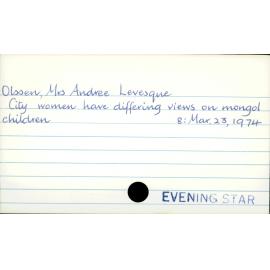 Olssen, Mrs Andree Levesque
City women have differing views on mongol
children 8: Mar. 23, 1974
EVENING STAR